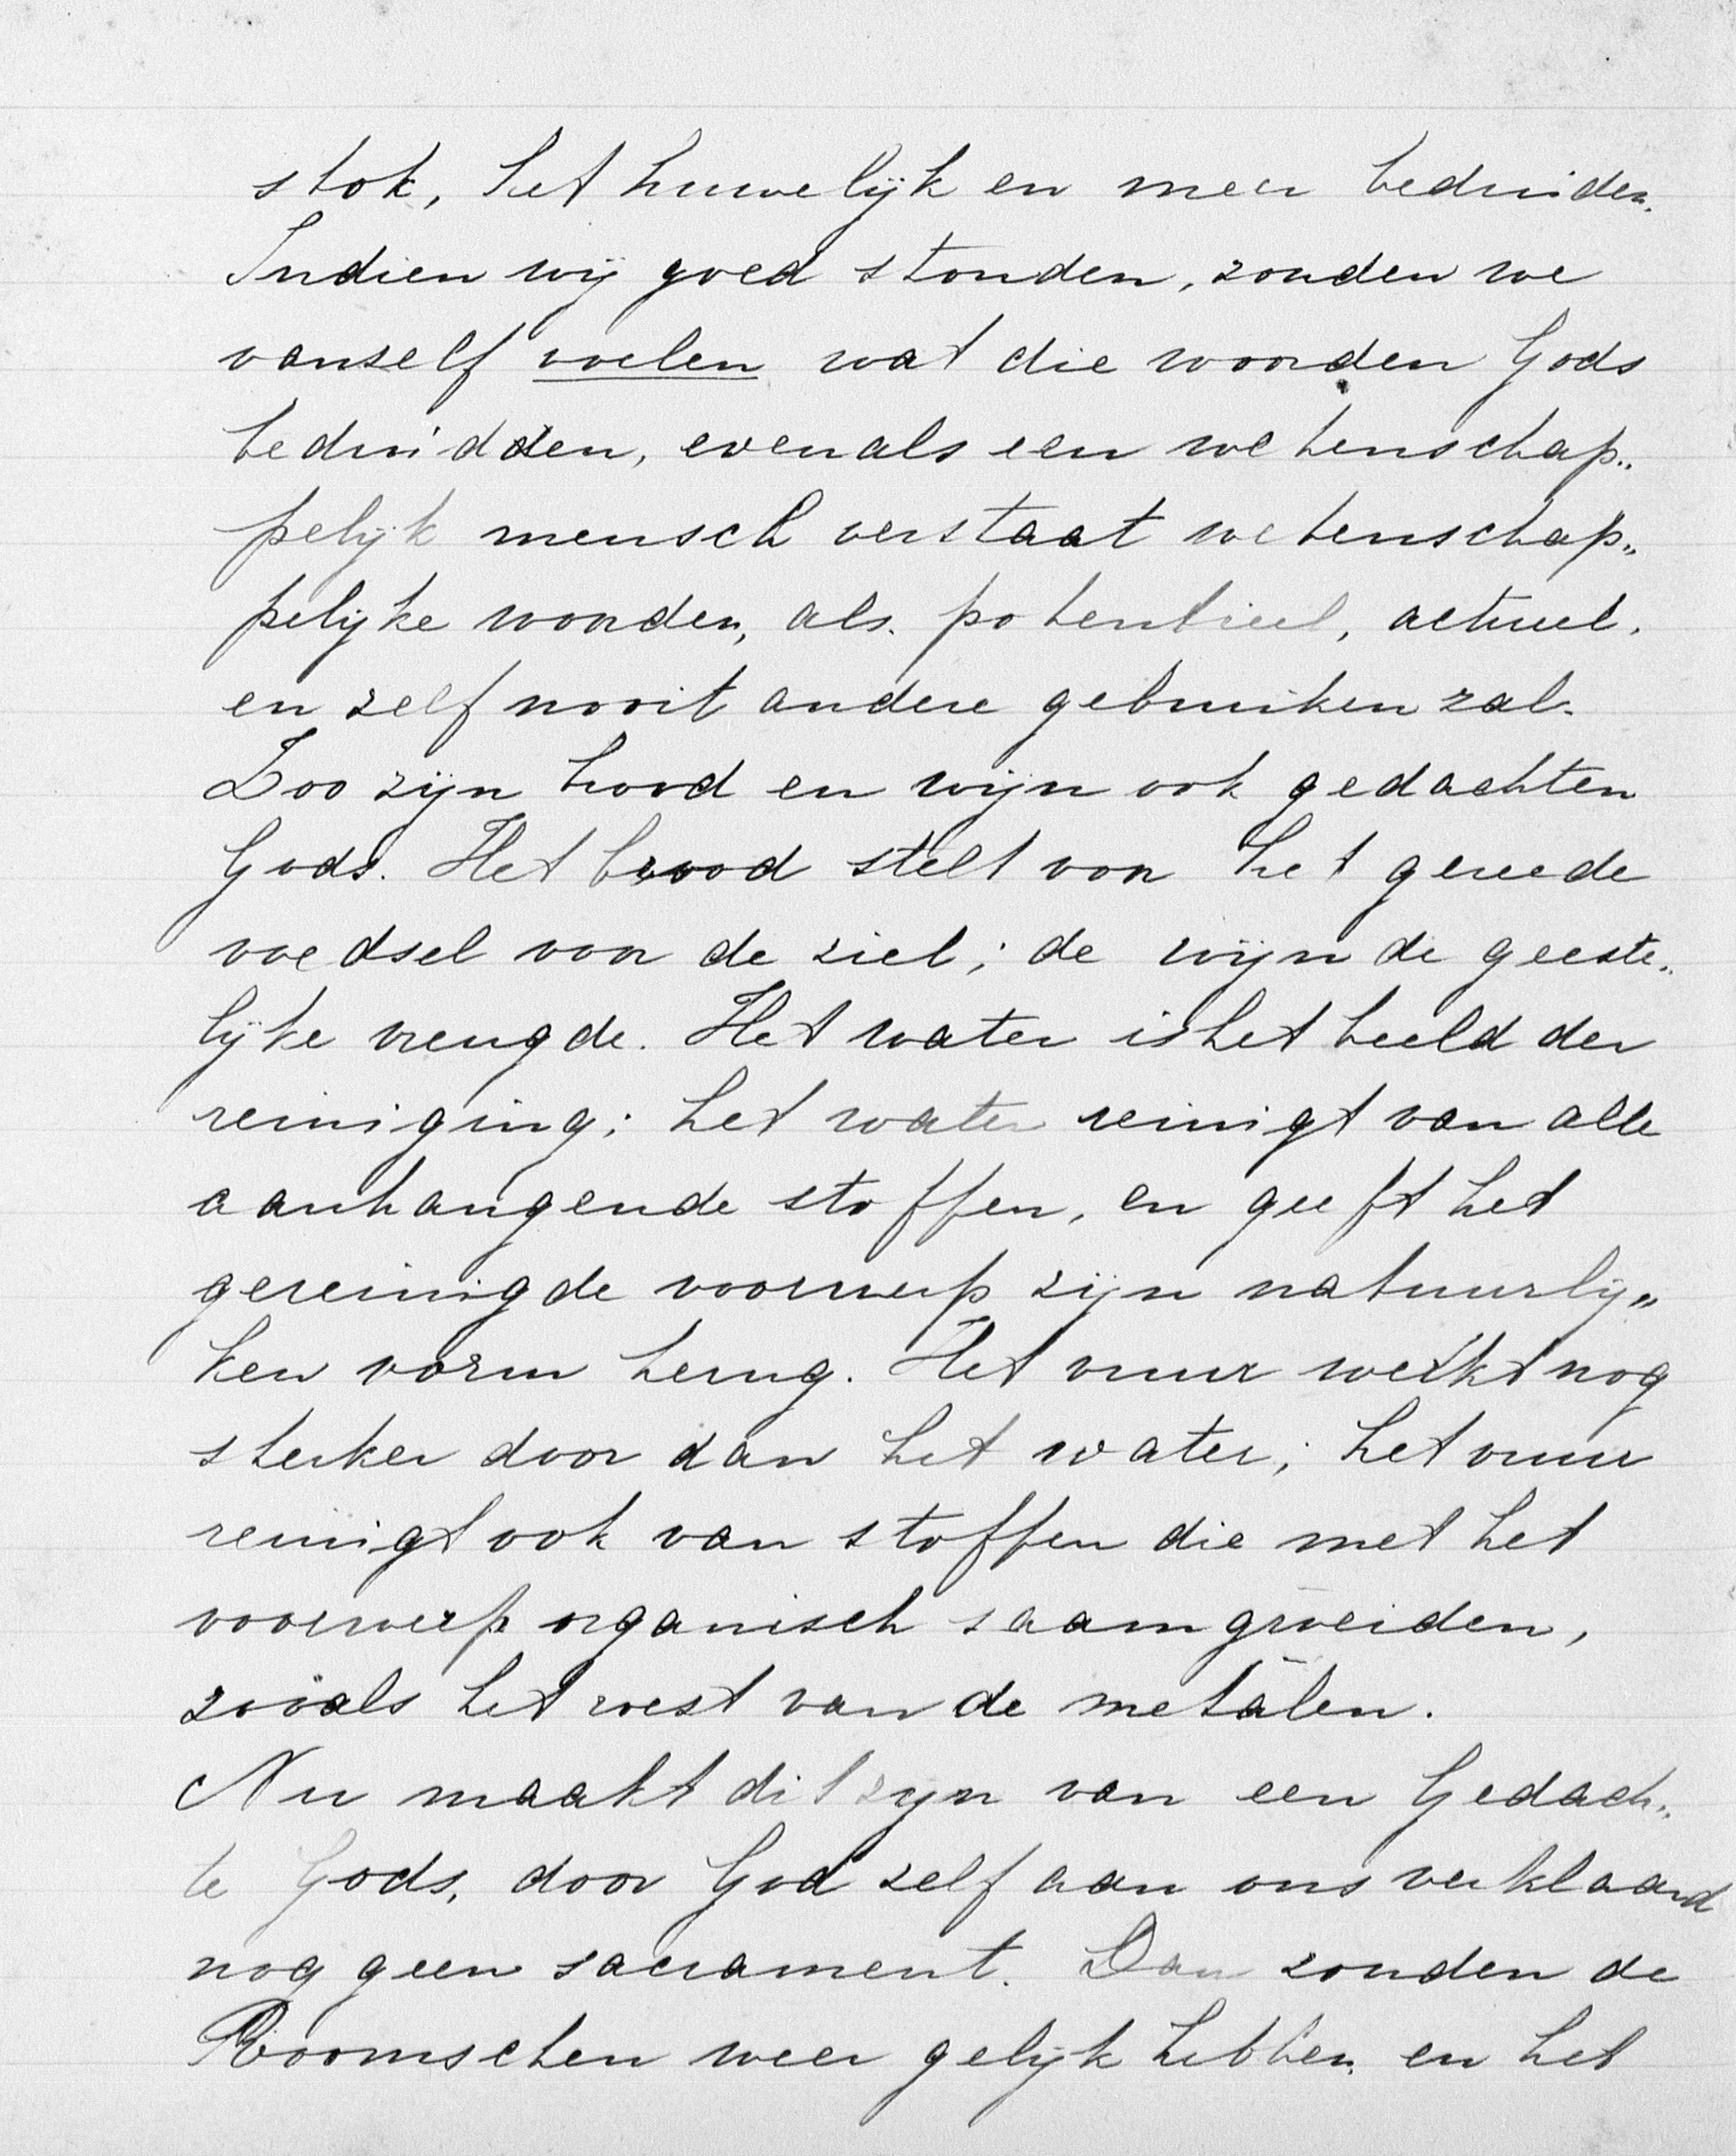 stok, het huwelijk en meer beduiden.
Indien wij goed stonden, zouden we
vanself voelen wat die woorden Gods
beduidden, evenals een wetenschap„
pelijk mensch verstaat wetenschap„
pelijke woorden, als potentieel, actueel,
en zelf nooit andere gebruiken zal.
Zoo zijn brood en wijn ook gedachten
Gods. Het brood stelt voor het gereede
voedsel voor de ziel; de wijn de geeste„
lijke vreugde. Het water is het beeld der
reiniging; het water reinigt van alle
aanhangende stoffen, en geeft het
gereinigde voorwerp zijn natuurlij„
ken vorm terug. Het vuur werkt nog
sterker door dan het water; het vuur
reinigt ook van stoffen die met het
voorwerp organisch saamgroeiden,
zooals het roest van de metalen.
Nu maakt dit zijn van een Gedach„
te Gods, door God zelf aan ons verklaard
nog geen sacrament. Dan zouden de
Roomschen weer gelijk hebben en het